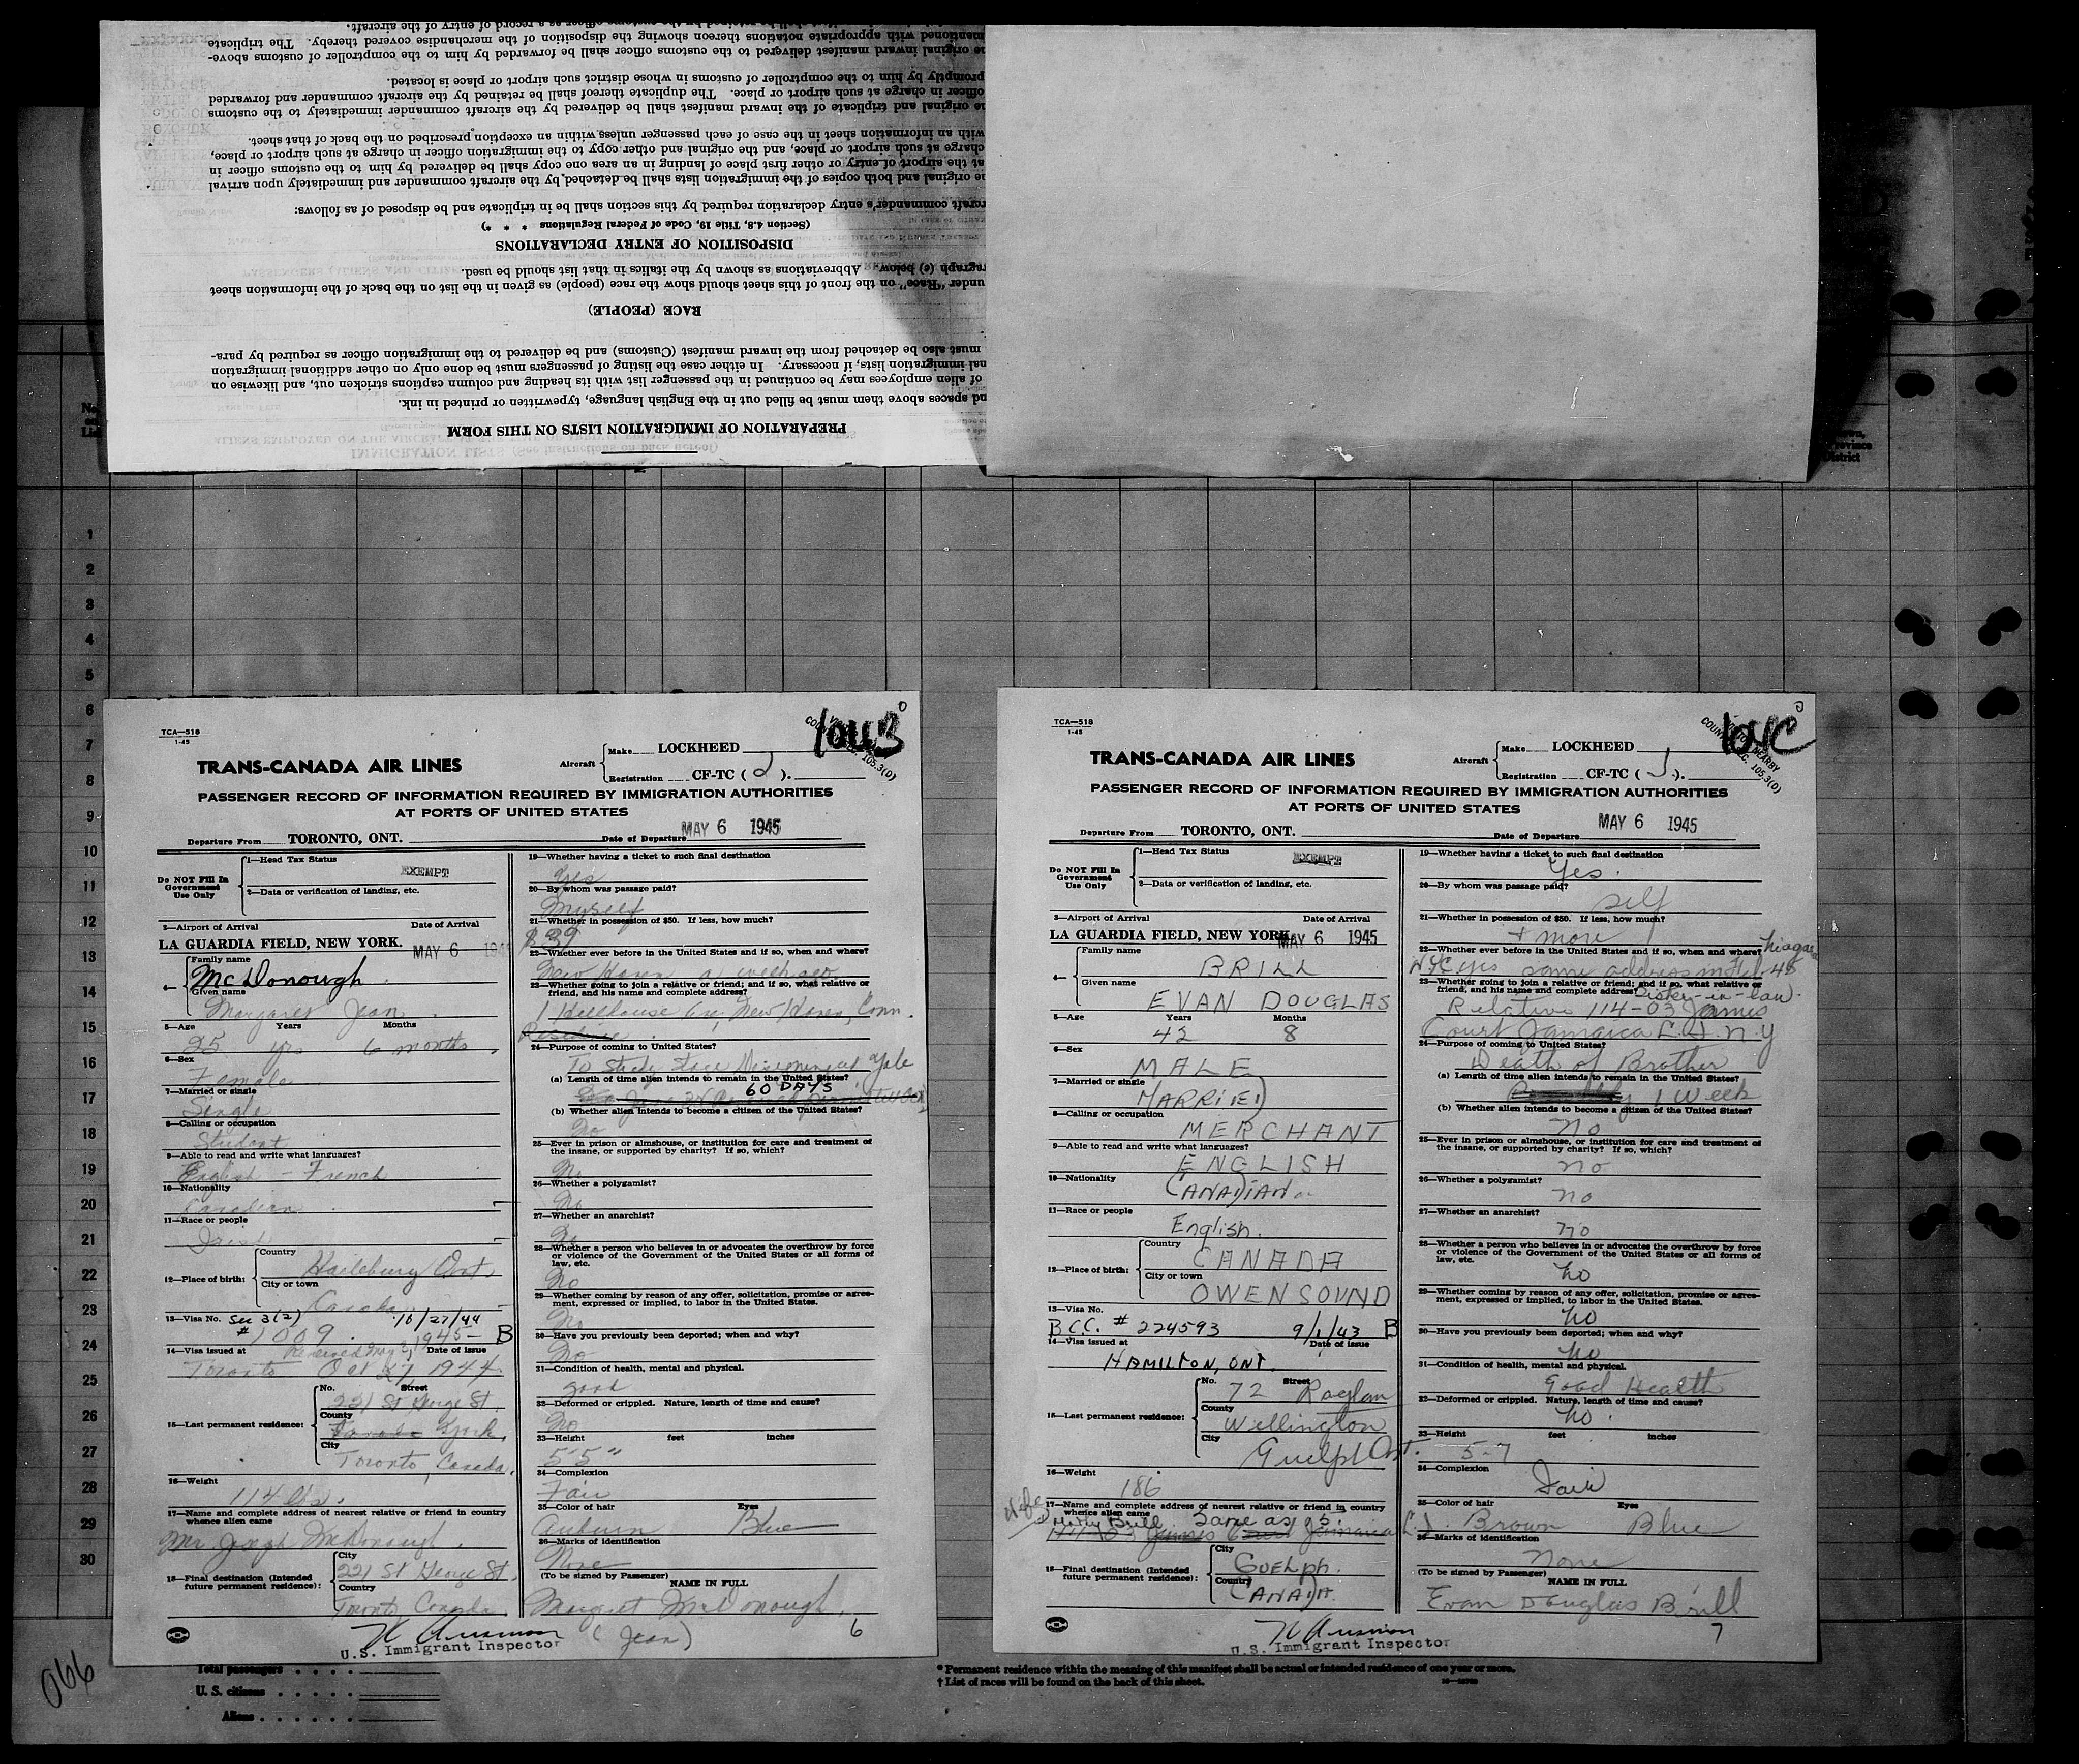 mentioned with appropriate notations thereon showing the disposition of the merchandise covered thereby. The triplicate
original inward manifest delivered to the customs officer shall be forwarded by him to the comptroller of customs above-
promptly by him to the comptroller of customs in whose district such airport or place is located.
officer in charge at such airport or place. The duplicate thereof shall be retained by the aircraft commander and forwarded
original and triplicate of the inward manifest shall be delivered by the aircraft commander immediately to the customs
with an information sheet in the case of each passenger unless within an exception prescribed on the back of that sheet.
charge at such airport or place, and the original and other copy to the immigration officer in charge at such airport or place,
at the airport of entry or other first place of landing in an area one copy shall be delivered by him to the customs officer in
original and both copies of the immigration lists shall be detached by the aircraft commander and immediately upon arrival
commander's entry declaration required by this section shall be in triplicate and be disposed of as follows:
(Section 4.8, Title 19, Code of Federal Regulations * * *)
DISPOSITION OF ENTRY DECLARATIONS
(c) below. Abbreviations as shown by the italics in that list should be used.
under "Race" on the front of this sheet should show the race (people) as given in the list on the back of the information sheet
RACE (PEOPLE)
must also be detached from the inward manifest (Customs) and be delivered to the immigration officer as required by para-
immigration lists, if necessary. In either case the listing of passengers must be done only on other additional immigration
of alien employees may be continued in the passenger list with its heading and column captions stricken out, and likewise on
spaces above them must be filled out in the English language, typewritten or printed in ink.
PREPARATION OF IMMIGRATION LISTS ON THIS FORM
District
1
2
3
4
5
6
7
8
9
10
11
12
13
14
15
16
17
18
19
20
21
22
23
24
25
26
27
28
29
30
TCA—518
1-45
TRANS-CANADA AIR LINES
Aircraft
Make LOCKHEED
Registration CF-TC ( J ).
PASSENGER RECORD OF INFORMATION REQUIRED BY IMMIGRATION AUTHORITIES
AT PORTS OF UNITED STATES
Departure From TORONTO, ONT. Date of Departure MAY 6 1945
Do NOT Fill In
Government
Use Only
1—Head Tax Status
EXEMPT
2—Data or verification of landing, etc.
3—Airport of Arrival Date of Arrival
LA GUARDIA FIELD, NEW YORK. MAY 6
4—
Family name
McDonough
Given name
Margaret Jean
5—Age Years Months
25 yrs 6 months
6—Sex
Female
7—Married or single
Single
8—Calling or occupation
Student
9—Able to read and write what languages?
English - French
10—Nationality
Canadian
11—Race or people
Irish
12—Place of birth:
Country
Haileybury Ont
City or town
Canada
13—Visa No. Sec 3(2) 10/27/44
# 1009 1945 B
14—Visa issued at Date of issue
Toronto Oct 27, 1944.
15—Last permanent residence:
No. Street
221 St George St.
County
York,
City
Toronto, Canada.
16—Weight
114 lbs.
17—Name and complete address of nearest relative or friend in country
whence alien came
Mr Joseph McDonough
18—Final destination (Intended
future permanent residence):
City
221 St George St.
Country
Toronto Canada
19—Whether having a ticket to such final destination
Yes
20—By whom was passage paid?
Myself
21—Whether in possession of $50. If less, how much?
$39
22—Whether ever before in the United States and if so, when and where?
New Haven a week ago
23—Whether going to join a relative or friend; and if so, what relative or
friend, and his name and complete address?
1 Hillhouse Ave, New Haven, Conn.
24—Purpose of coming to United States?
To Study Stage Designing at Yale
(a) Length of time alien intends to remain in the United States?
60 DAYS
(b) Whether alien intends to become a citizen of the United States?
No
25—Ever in prison or almshouse, or institution for care and treatment of
the insane, or supported by charity? If so, which?
No
26—Whether a polygamist?
No
27—Whether an anarchist?
No
28—Whether a person who believes in or advocates the overthrow by force
or violence of the Government of the United States or all forms of
law, etc.
No
29—Whether coming by reason of any offer, solicitation, promise or agree-
ment, expressed or implied, to labor in the United States.
No
30—Have you previously been deported; when and why?
No
31—Condition of health, mental and physical.
good
32—Deformed or crippled. Nature, length of time and cause?
No
33—Height feet inches
5'5"
34—Complexion
Fair
35—Color of hair Eyes
Auburn Blue
36—Marks of identification
None
(To be signed by Passenger) NAME IN FULL
Margaret McDonough
(Jean)
6
U.S. Immigrant Inspector
TCA—518
1-45
TRANS-CANADA AIR LINES
Aircraft
Make LOCKHEED
Registration CF-TC ( J ).
PASSENGER RECORD OF INFORMATION REQUIRED BY IMMIGRATION AUTHORITIES
AT PORTS OF UNITED STATES
Departure From TORONTO, ONT. Date of Departure MAY 6 1945
Do NOT Fill In
Government
Use Only
1—Head Tax Status
EXEMPT
2—Data or verification of landing, etc.
3—Airport of Arrival Date of Arrival
LA GUARDIA FIELD, NEW YORK. MAY 6 1945
4—
Family name
BRILL
Given name
EVAN DOUGLAS
5—Age Years Months
42 8
6—Sex
MALE
7—Married or single
MARRIED
8—Calling or occupation
MERCHANT
9—Able to read and write what languages?
ENGLISH
10—Nationality
CANADIAN
11—Race or people
English.
12—Place of birth:
Country
CANADA
City or town
OWEN SOUND
13—Visa No.
B.C.C. # 224593 9/1/43 B
14—Visa issued at Date of issue
HAMILTON, ONT.
15—Last permanent residence:
No. Street
72 Raglan
County
Wellington
City
Guelph Ont.
16—Weight
186
17—Name and complete address of nearest relative or friend in country
whence alien came
Wife
Brill Same as 15.
18—Final destination (Intended
future permanent residence):
City
GUELPH.
Country
CANADA.
19—Whether having a ticket to such final destination
Yes.
20—By whom was passage paid?
self
21—Whether in possession of $50. If less, how much?
+ more
22—Whether ever before in the United States and if so, when and where?
NYC yes same address in Feb 45
23—Whether going to join a relative or friend; and if so, what relative or
friend, and his name and complete address? Sister-in-law.
Relative 114-03 James
Court Jamaica L.I. N.Y
24—Purpose of coming to United States?
Death of Brother
(a) Length of time alien intends to remain in the United States?
1 Week
(b) Whether alien intends to become a citizen of the United States?
no
25—Ever in prison or almshouse, or institution for care and treatment of
the insane, or supported by charity? If so, which?
no
26—Whether a polygamist?
no
27—Whether an anarchist?
no
28—Whether a person who believes in or advocates the overthrow by force
or violence of the Government of the United States or all forms of
law, etc.
no
29—Whether coming by reason of any offer, solicitation, promise or agree-
ment, expressed or implied, to labor in the United States.
no
30—Have you previously been deported; when and why?
no
31—Condition of health, mental and physical.
Good Health
32—Deformed or crippled. Nature, length of time and cause?
no.
33—Height feet inches
5-7
34—Complexion
Fair
35—Color of hair Eyes
Brown Blue
36—Marks of identification
none
(To be signed by Passenger) NAME IN FULL
Evan Douglas Brill
7
U.S. Immigrant Inspector
066
Total passengers . . . .
U. S. citizens . . . . .
Aliens . . . . . .
* Permanent residence within the meaning of this manifest shall be actual or intended residence of one year or more.
† List of races will be found on the back of this sheet.